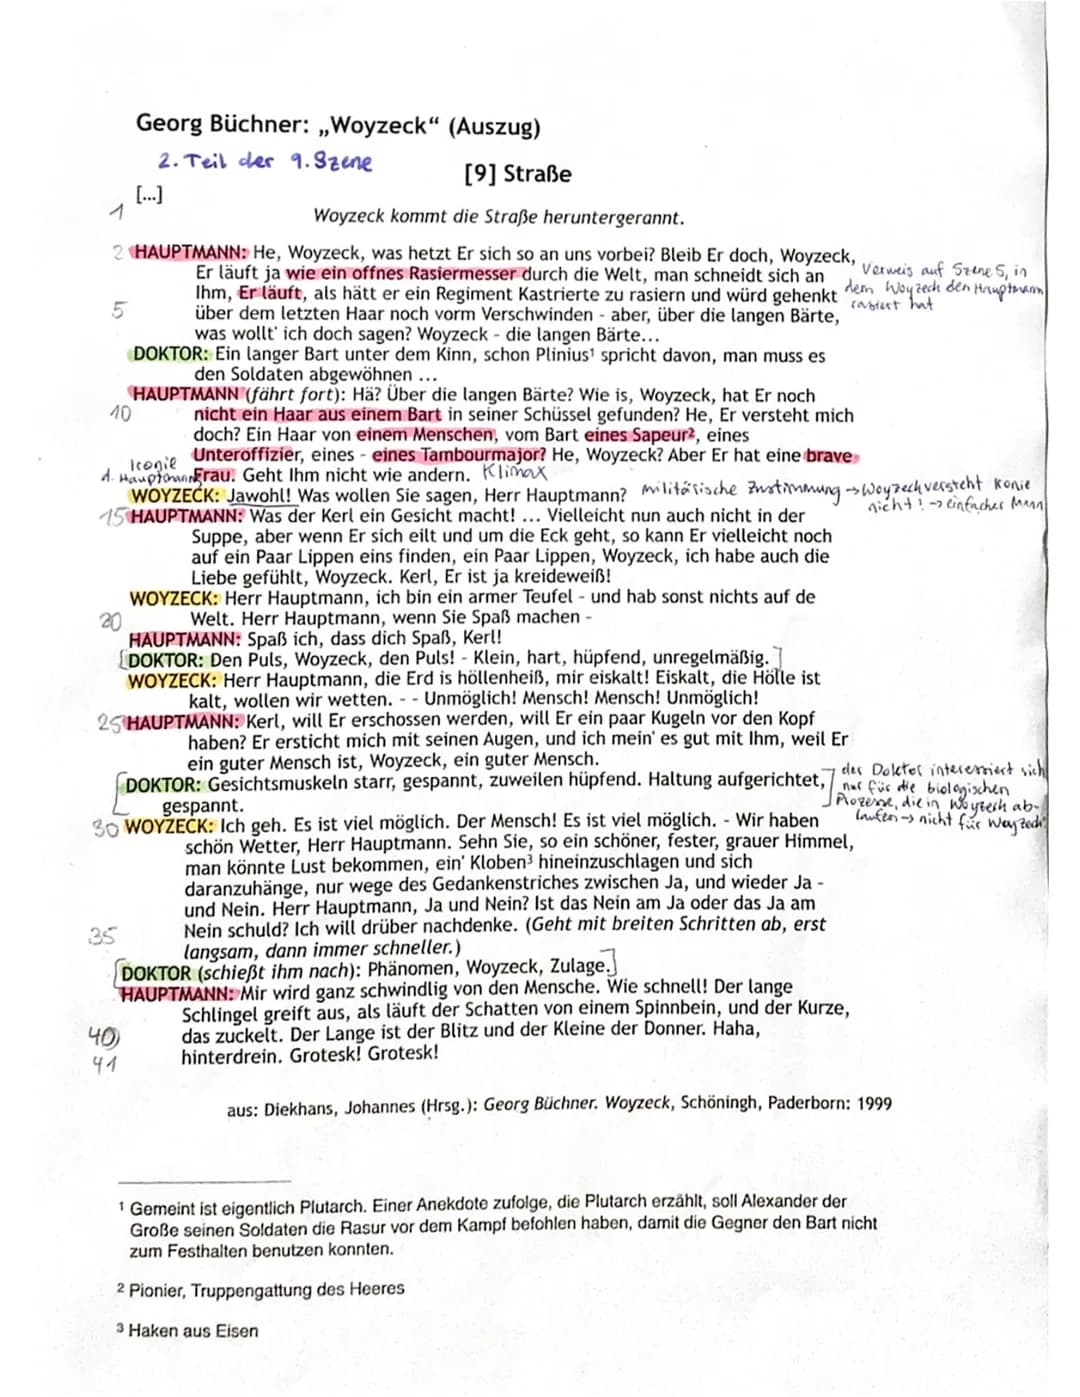 Georg Büchner: „Woyzeck“ (Auszug)
2. Teil der 9. Szene
[9] Straße
[...]
1
Woyzeck kommt die Straße heruntergerannt.
2 HAUPTMANN: He, Woyzeck, was hetzt Er sich so an uns vorbei? Bleib Er doch, Woyzeck,
Er läuft ja wie ein offnes Rasiermesser durch die Welt, man schneidet sich an
Verweis auf Szene 5, in
Ihm, Er läuft, als hätt er ein Regiment Kastrierte zu rasiern und würd gehenkt
dem Woyzeck den Hauptmann
5 über dem letzten Haar noch vorm Verschwinden - aber, über die langen Bärte,
rasiert hat
was wollt' ich doch sagen? Woyzeck - die langen Bärte...
DOKTOR: Ein langer Bart unter dem Kinn, schon Plinius¹ spricht davon, man muss es
den Soldaten abgewöhnen ...
HAUPTMANN (fährt fort): Hä? Über die langen Bärte? Wie is, Woyzeck, hat Er noch
10 nicht ein Haar aus einem Bart in seiner Schüssel gefunden? He, Er versteht mich
doch? Ein Haar von einem Menschen, vom Bart eines Sapeur², eines
Unteroffizier, eines - eines Tambourmajor? He, Woyzeck? Aber Er hat eine brave
Ironie
d. Hauptmann
Frau. Geht Ihm nicht wie andern. Klimax
WOYZECK: Jawohl! Was wollen Sie sagen, Herr Hauptmann? militärische Zustimmung → Woyzeck versteht Ironie
nicht! → einfacher Mann
15 HAUPTMANN: Was der Kerl ein Gesicht macht! ... Vielleicht nun auch nicht in der
Suppe, aber wenn Er sich eilt und um die Eck geht, so kann Er vielleicht noch
auf ein Paar Lippen eins finden, ein Paar Lippen, Woyzeck, ich habe auch die
Liebe gefühlt, Woyzeck. Kerl, Er ist ja kreideweiß!
WOYZECK: Herr Hauptmann, ich bin ein armer Teufel - und hab sonst nichts auf de
20 Welt. Herr Hauptmann, wenn Sie Spaß machen -
HAUPTMANN: Spaß ich, dass dich Spaß, Kerl!
DOKTOR: Den Puls, Woyzeck, den Puls! - Klein, hart, hüpfend, unregelmäßig.
WOYZECK: Herr Hauptmann, die Erd is höllenheiß, mir eiskalt! Eiskalt, die Hölle ist
kalt, wollen wir wetten. - - Unmöglich! Mensch! Mensch! Unmöglich!
25 HAUPTMANN: Kerl, will Er erschossen werden, will Er ein paar Kugeln vor den Kopf
haben? Er ersticht mich mit seinen Augen, und ich mein' es gut mit Ihm, weil Er
ein guter Mensch ist, Woyzeck, ein guter Mensch.
DOKTOR: Gesichtsmuskeln starr, gespannt, zuweilen hüpfend. Haltung aufgerichtet,
gespannt.
der Doktor interessiert sich
nur für die biologischen
Prozesse, die in Woyzeck ab-
laufen → nicht für Woyzeck
30 WOYZECK: Ich geh. Es ist viel möglich. Der Mensch! Es ist viel möglich. - Wir haben
schön Wetter, Herr Hauptmann. Sehn Sie, so ein schöner, fester, grauer Himmel,
man könnte Lust bekommen, ein' Kloben³ hineinzuschlagen und sich
daranzuhänge, nur wege des Gedankenstriches zwischen Ja, und wieder Ja -
und Nein. Herr Hauptmann, Ja und Nein? Ist das Nein am Ja oder das Ja am
35 Nein schuld? Ich will drüber nachdenke. (Geht mit breiten Schritten ab, erst
langsam, dann immer schneller.)
DOKTOR (schießt ihm nach): Phänomen, Woyzeck, Zulage.
HAUPTMANN: Mir wird ganz schwindlig von den Mensche. Wie schnell! Der lange
Schlingel greift aus, als läuft der Schatten von einem Spinnbein, und der Kurze,
40 das zuckelt. Der Lange ist der Blitz und der Kleine der Donner. Haha,
41 hinterdrein. Grotesk! Grotesk!
aus: Diekhans, Johannes (Hrsg.): Georg Büchner. Woyzeck, Schöningh, Paderborn: 1999
1 Gemeint ist eigentlich Plutarch. Einer Anekdote zufolge, die Plutarch erzählt, soll Alexander der
Große seinen Soldaten die Rasur vor dem Kampf befohlen haben, damit die Gegner den Bart nicht
zum Festhalten benutzen konnten.
2 Pionier, Truppengattung des Heeres
3 Haken aus Eisen